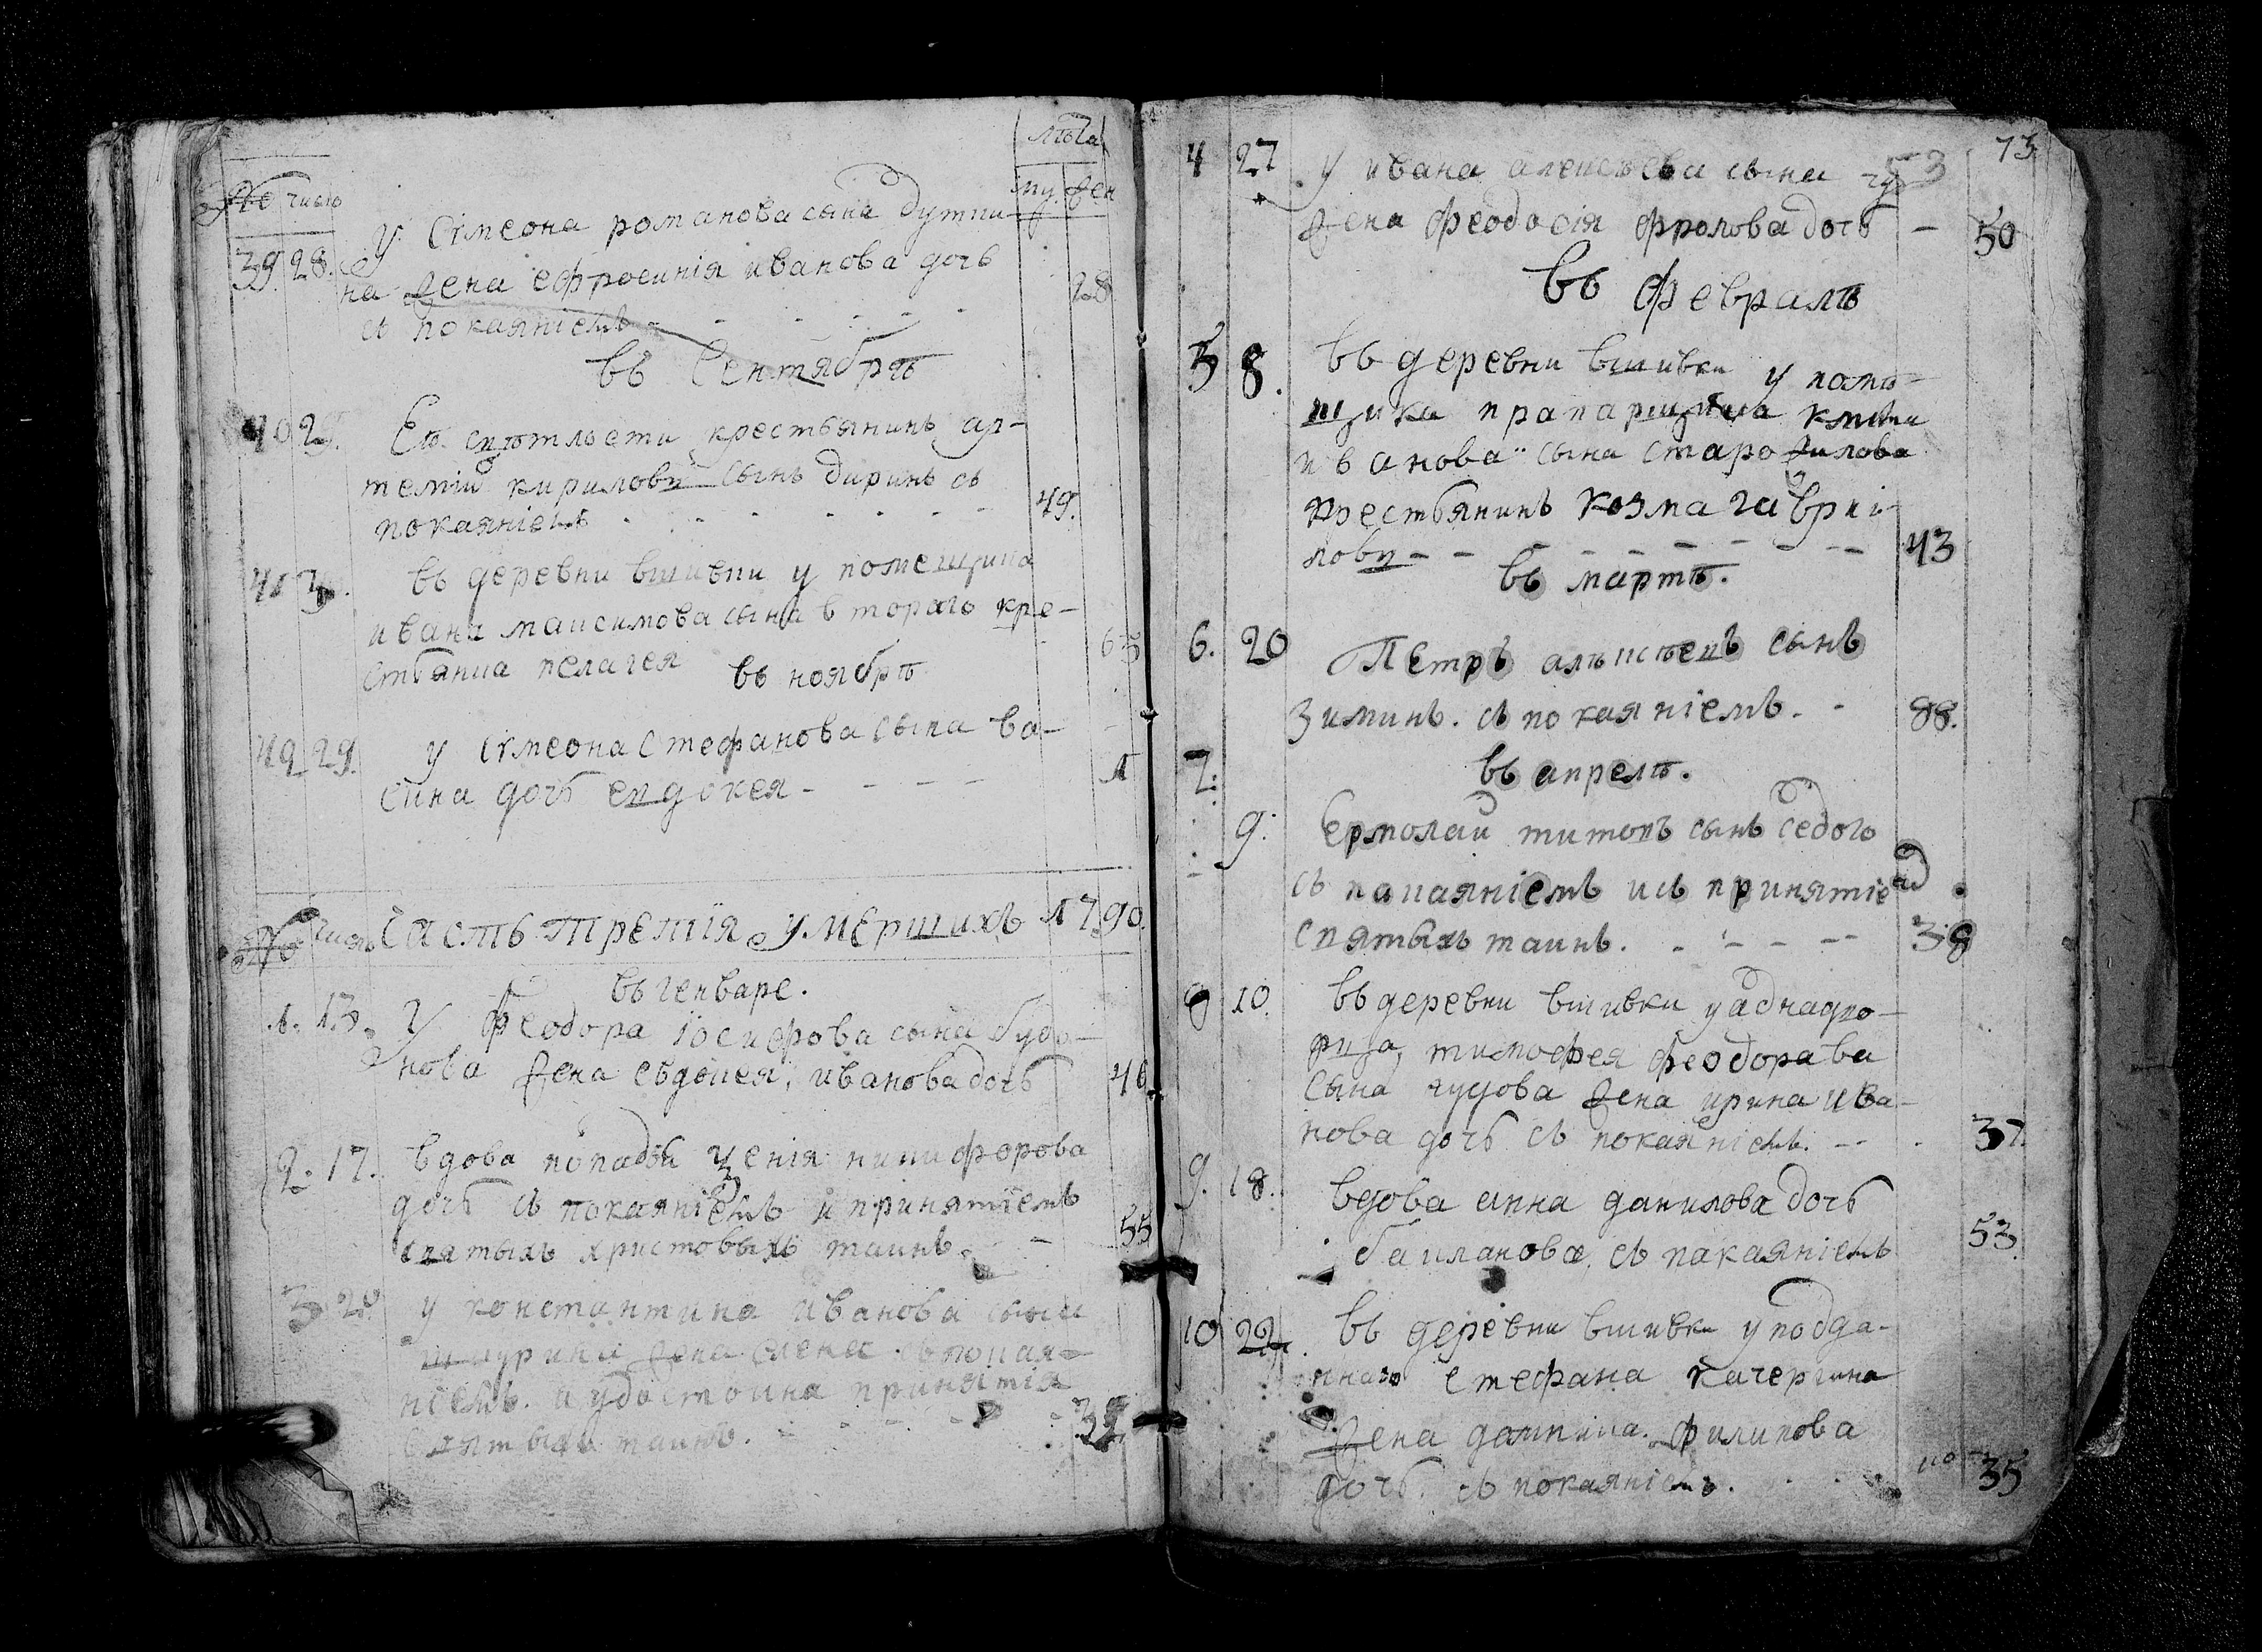 лѣта
№ число му. жен
39. 28. У Сімеона романова сына дутки-
на жена ефросинія иванова дочь 28
съ покаяніемъ
въ Сентябрѣ
40 2 Ея свѣтлости крестьянинъ ар-
темій кириловъ сынъ диринъ съ
покаяніемъ 49.
41 въ деревни вшивки у помещика
ивана максимова сына втораго кре-
стьянка пелагея 63
въ ноябрѣ
42 29. у Сімеона Стефанова сына ва-
сина дочь евдокея 1
№ число Часть третія о умершихъ 1790.
въ генваре.
1. 13. У Феодора іосифова сына
нова жена евдокея, иванова дочь 46
2. 17. вдова попадья ксенія никифорова
дочь съ покаяніемъ и принятіемъ
святыхъ христовыхъ таинъ. 55
3 20 у константина иванова сына
жена елена съ покая-
ніемъ. и удостоина принятія
святыхъ таинъ.
73
4 27 у ивана алексѣева сына
жена феодосія фролова дочь 50
въ февралѣ
5 8. въ деревни вшивки у помѣ-
щика прапарщика
иванова сына старожилова
крестьянинъ козма гаври-
ловъ 43
въ мартѣ.
6. 20 Петръ алѣксѣевъ сынъ
Зиминъ. съ покаяніемъ. 88.
7. въ апрелѣ.
9. Ермолай титовъ сынъ седого
съ покаяніемъ и съ принятіем
святыхъ таинъ. 38
8 10. въ деревни вшивки у аднадво-
рца, тимофея феодорава
сына чудова жена ирина ива-
нова дочь съ покаяніемъ. 37.
9. 18. вдова анна данилова дочь
баиланова, съ пакаяніемъ 53.
10 22 въ деревни вшивки у подда-
ннаго стефана качергина
жена домника филипова
дочь. съ покаяніемъ. 35